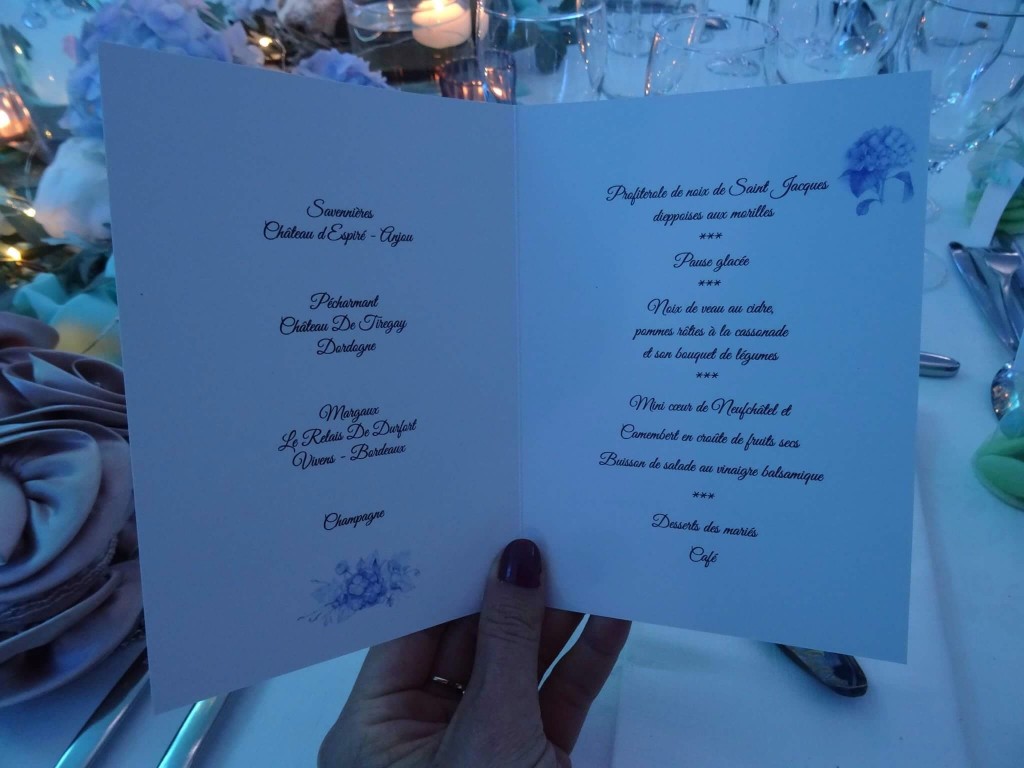 Savennières
Château d'Espiré - Anjou
Pécharmant
Château De Tiregay
Dordogne
Margaux
Le Relais De Durfort
Vivens - Bordeaux
Champagne
Profiterole de noix de Saint Jacques
dieppoises aux morilles
***
Pause glacée
***
Noix de veau au cidre,
pommes rôties à la cassonade
et son bouquet de légumes
***
Mini cœur de Neufchâtel et
Camembert en croûte de fruits secs
Buisson de salade au vinaigre balsamique
***
Desserts des mariés
Café